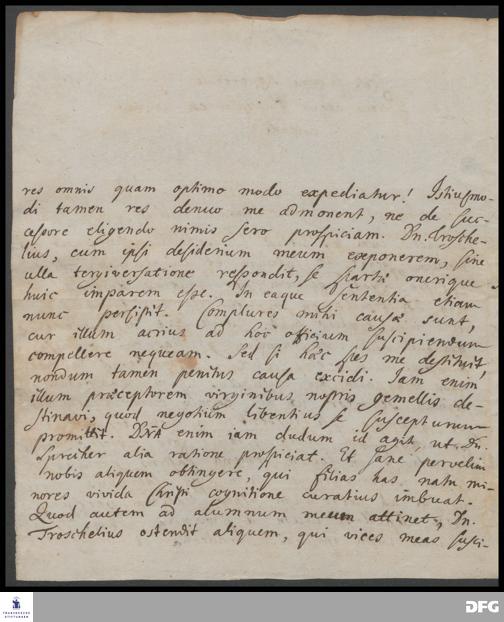 res omnis quam optimo modo expediatur! Istiusmo-
di tamen res denuo me admonent, ne de suc-
cessore eligendo nimis sero prospiciam. Dn. Trosche-
lius, cum ipsi desiderium meum exponerem, sine
ulla tergiversatione respondit, se spartæ onerique
huic imparem esse. In eaque sententia etiam
nunc persistit. Complures mihi causæ sunt,
cur illum acrius ad hoc officium suscipiendum
compellere nequeam. Sed si hæc spes me destituit,
nondum tamen penitus causa excidi. Iam enim
illum præceptorem virginibus nostris gemellis de-
stinavi, quod negotium libentius se suscepturum
promittit. enim iam dudum id agit, ut Dn.
Spreiher alia ratione prospiciat. Et sane pervelim
nobis aliquem obtingere, qui filias has natu mi-
nores vivida Christi cognitione curatius imbuat.
Quod autem ad alumnum meum attinet, Dn.
Troschelius ostendit aliquem, qui vices meas susci-
FRANCKESCHE
STIFTUNGEN
DFG